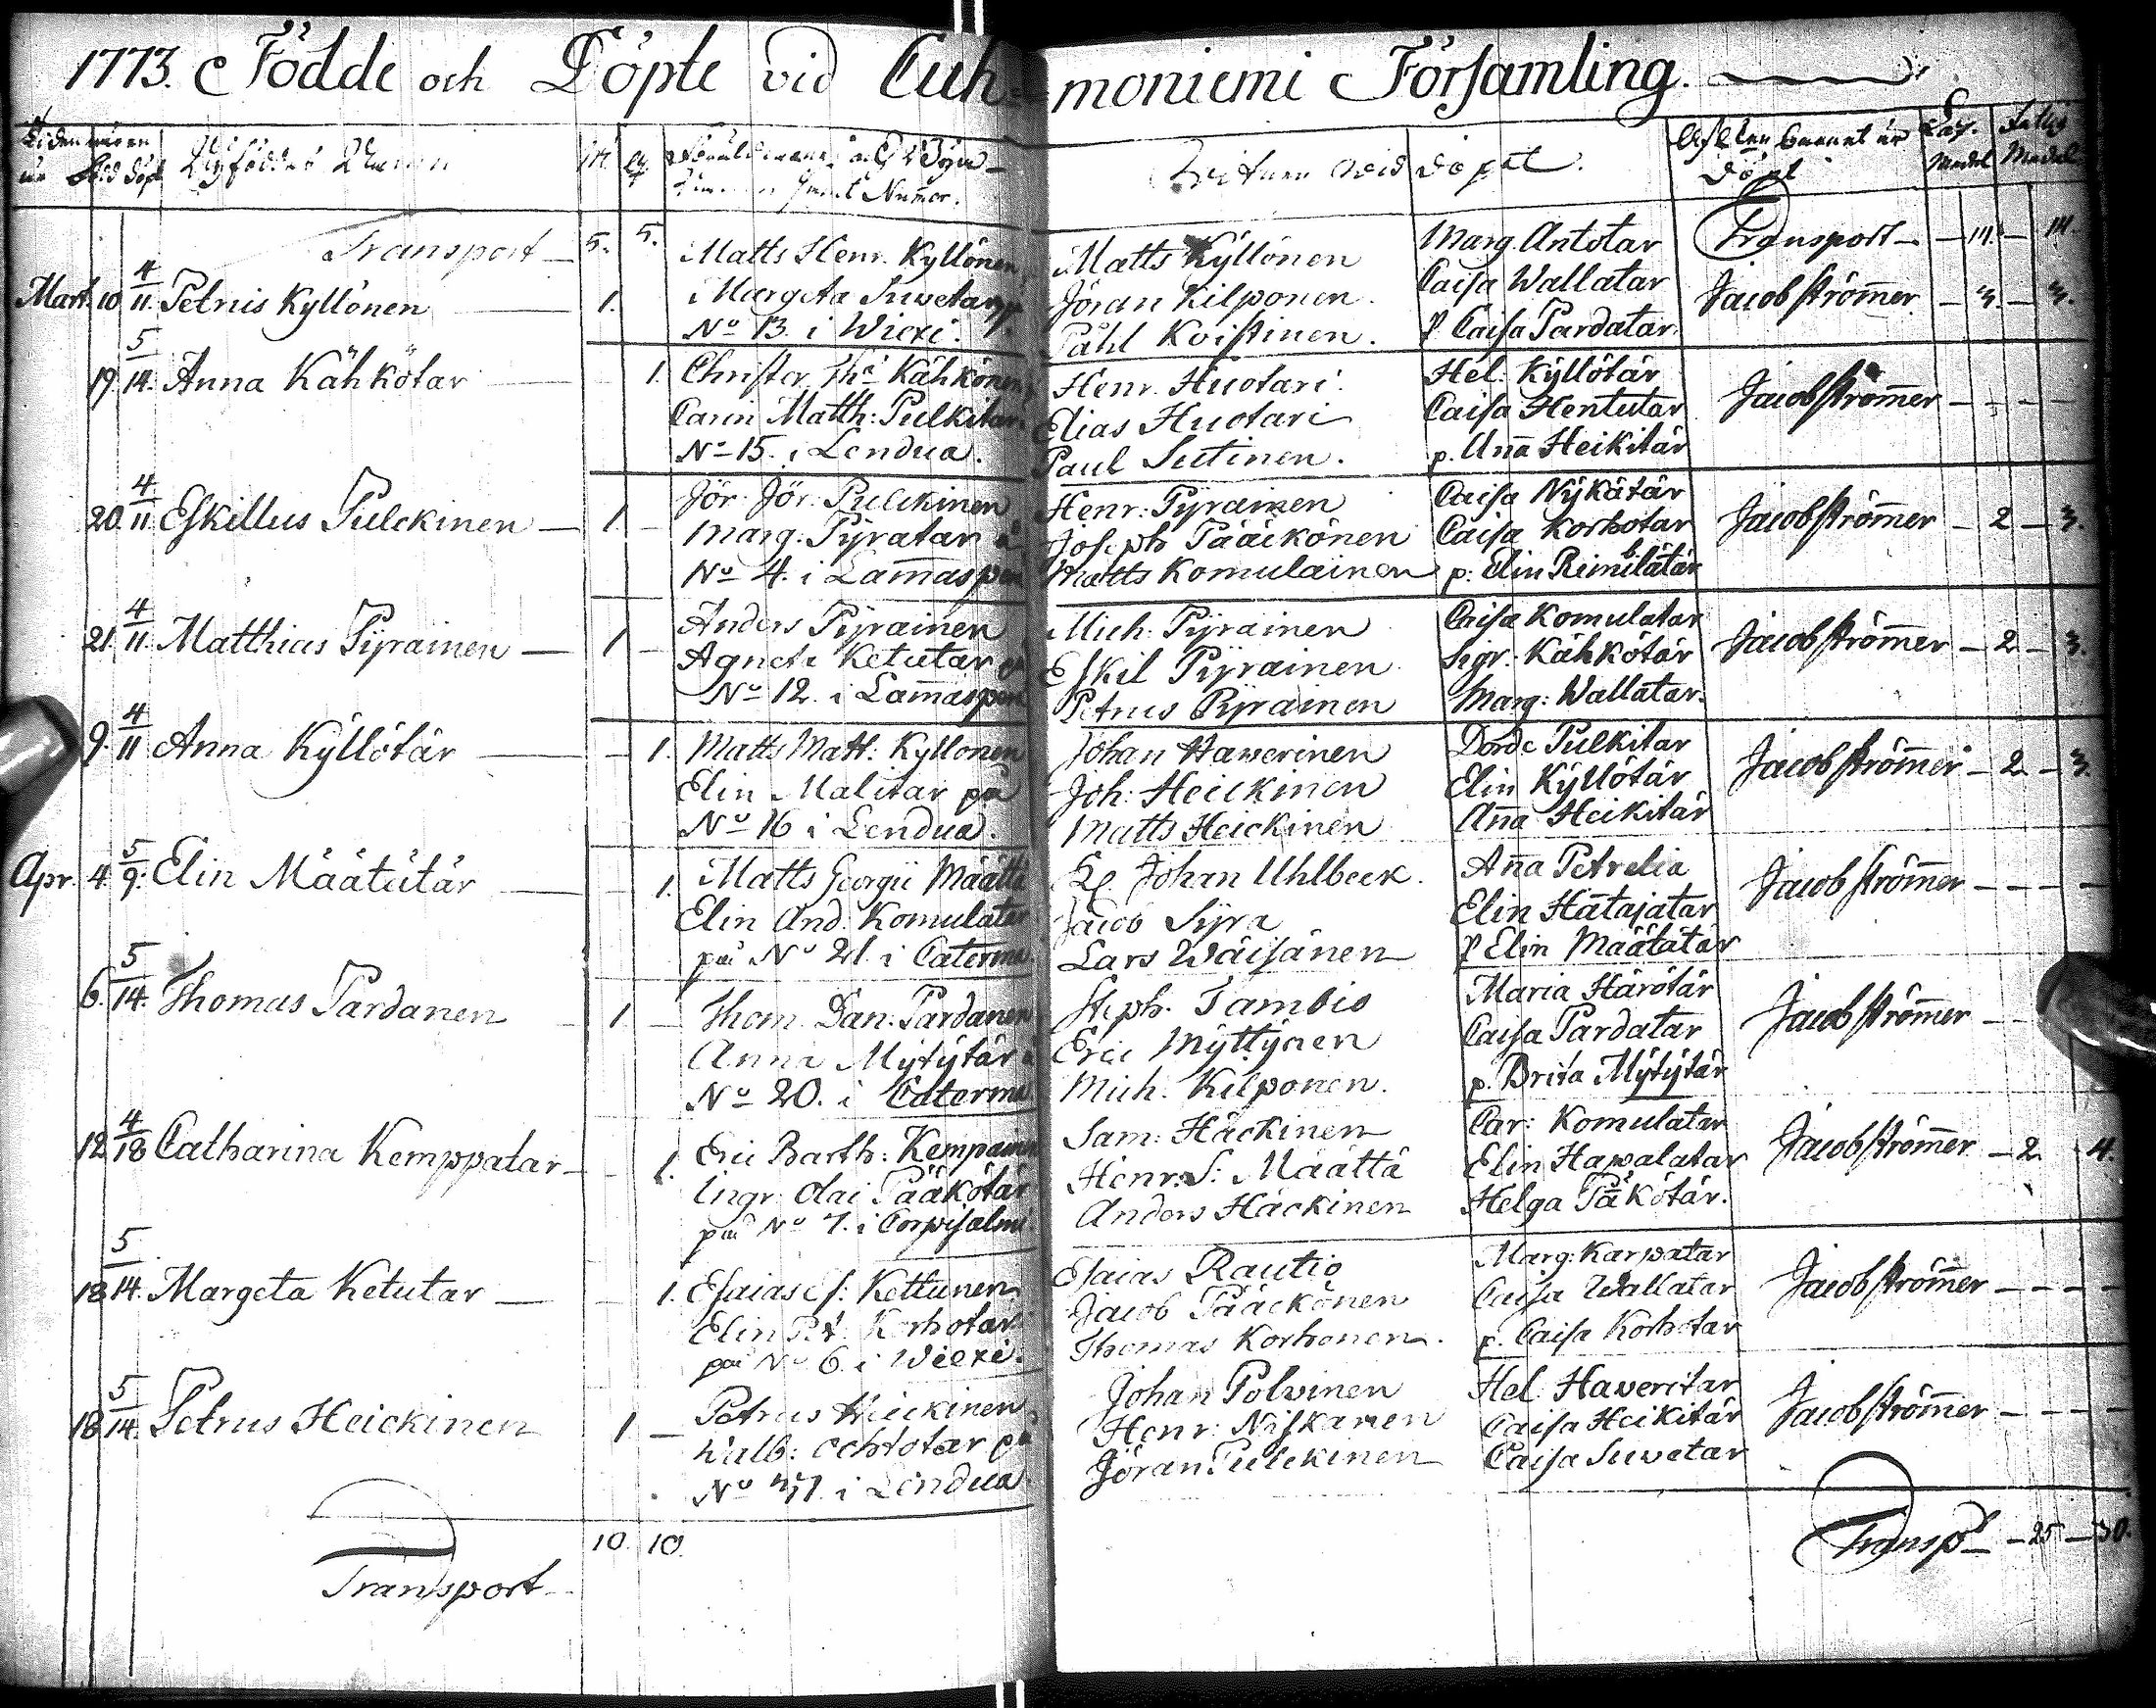 1773. Födde och Döpte vid Cuhmoniemi Församling.
Vitnen wid döpet.
Transport 5. 5. Transport 14. 14.
Mart. 10 4/11 Petrus Kyllönen 1.
Matts Henr. Kyllönen
Margeta Suwetar
No 13. i Wiexi.
Matts Kyllönen Marg. Antotar
Jöran Kilponen. Caisa Wallatar
Påhl Koistinen. p Caisa Pardatar.
Jacob Strömer 3. 3.
19. 5/14. Anna Kähkötar 1.
Christer Kähkönen
Carin Matth: Pulkitar
No 15. i Lendua.
Henr. Huotari Hel: Kyllötär
Elias Huotari Caisa Hentutar
Paul Sutinen. p. Ana Heikitär
Jacob Strömer
20. 4/11 Eskillus Pulckinen 1.
Jör. Jör: Pulckinen
Marg: Pyratar
No 4. i Lamaspere
Henr: Pyrainen Caisa Nykätär
Joseph Pääckönen Caisa Korhotar
Matts Komulainen p: Elin
Jacob Strömer 2 3.
21. 4/11 Matthias Pyrainen 1
Anders Pyrainen
Agneta Ketutar
No 12. i Lamaspere
Mich: Pyrainen Caisa Komulatar
Eskil Pyrainen Sigr: Kähkötär
Petrus Pyrainen Marg: Wallatar.
Jacob Strömer 2 3.
9. 4/11 Anna Kyllötär 1.
Matts Matt: Kyllonen
Elin Malitar på
No 16 i Lendua.
Johan Hawerinen Dorde Pulkitar
Joh: Heickinen Elin Kyllötär
Matts Heickinen Ana Heikitär
Jacob Strömer 2. 3.
Apr. 4. 5/9. Elin Määtätär 1.
Matts Georgii Määttä
Elin And. Komulatar
på No 21. i Caterma
Johan Uhlbeck. Ana Petrelia
Jacob Syra Elin Hatajatar
Lars Wäisänen p Elin Määtätär
Jacob Strömer
6. 5/14. Thomas Pardanen 1
Thom. Dan: Pardanen
Anna Mytytär
No 20. i Caterma
Steph. Tambio Maria Härötär
Eric Myttynen Caisa Pardatar
Mich. Kilponen. p. Brita Mytytär
Jacob Strömer
12. 4/18 Catharina Kemppatar 1.
Eric Barth: Kempainen
Ingr. Olai Pääkötär
på No 7. i Corpisalmi
Sam: Häckinen Car: Komulatar
Henr. S: Määttä Elin Hapalatar
Anders Häckinen Helga Päkötär.
Jacob Strömer 2. 4.
18. 5/14. Margeta Ketutar 1.
Esaias Es: Kettunen
Elin Pet: Korhotar
på No 6. i Wiexi.
Esaias Rautio Marg: Karpatar
Jacob Pääckönen Caisa Wallatar
Thomas Korhonen. p. Caisa Korhotar
Jacob Strömer
18. 5/14. Petrus Heickinen 1
Petrus Heickinen
Walb: Ochtotar på
i Lendua
Johan Polvinen Hel: Haveritar
Henr: Niskanen Caisa Heikitär
Jöran Pulckinen Caisa Suwetar
Jacob Strömer
Transport 10. 10. Transp. 25 30.